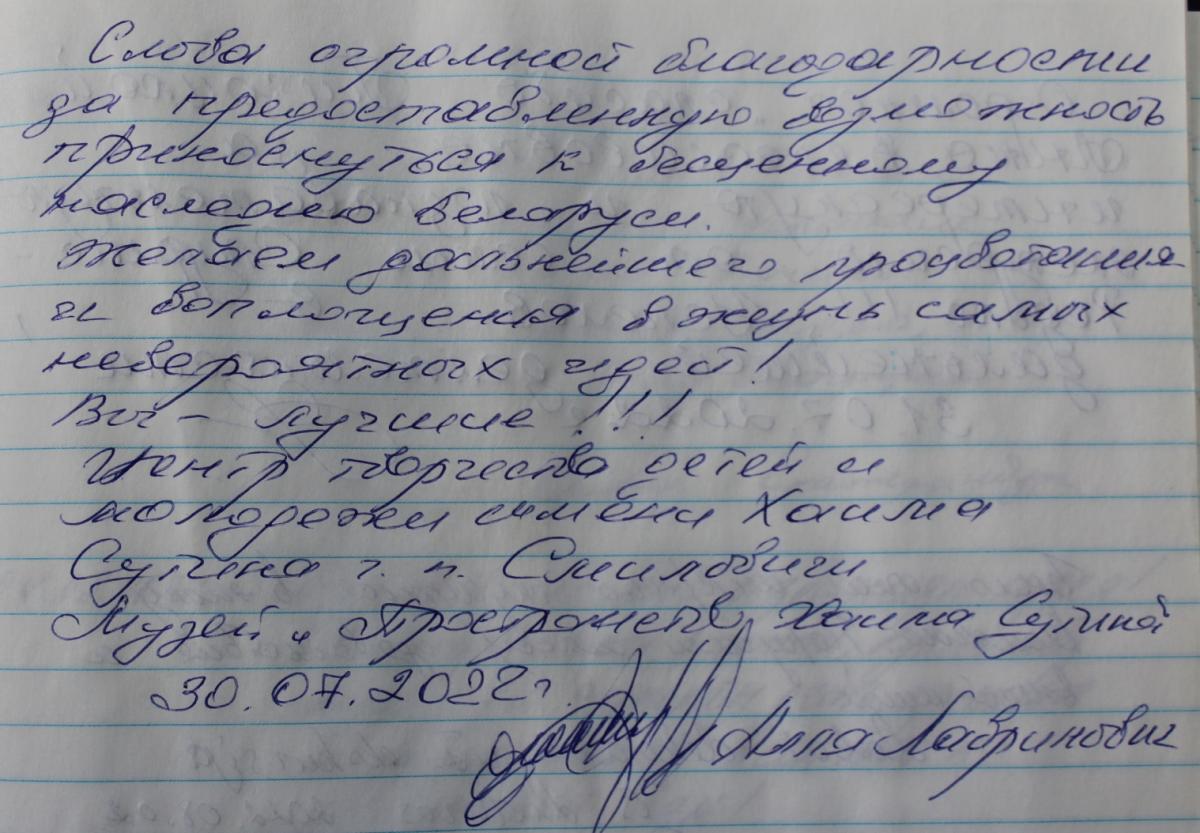 Слова огромной благодарности
за предоставленную возможность
прикоснуться к бесценному
наследию Беларуси.
Желаем дальнейшего процветания
и воплощения в жизнь самых
невероятных идей!
Вы - лучшие !!!
Центр творчества детей и
молодежи имени Хаима
Сутина г. п. Смиловичи
Музей „ Пространств Хаима Сутина"
30.07.2022г.
Алла Лавринович